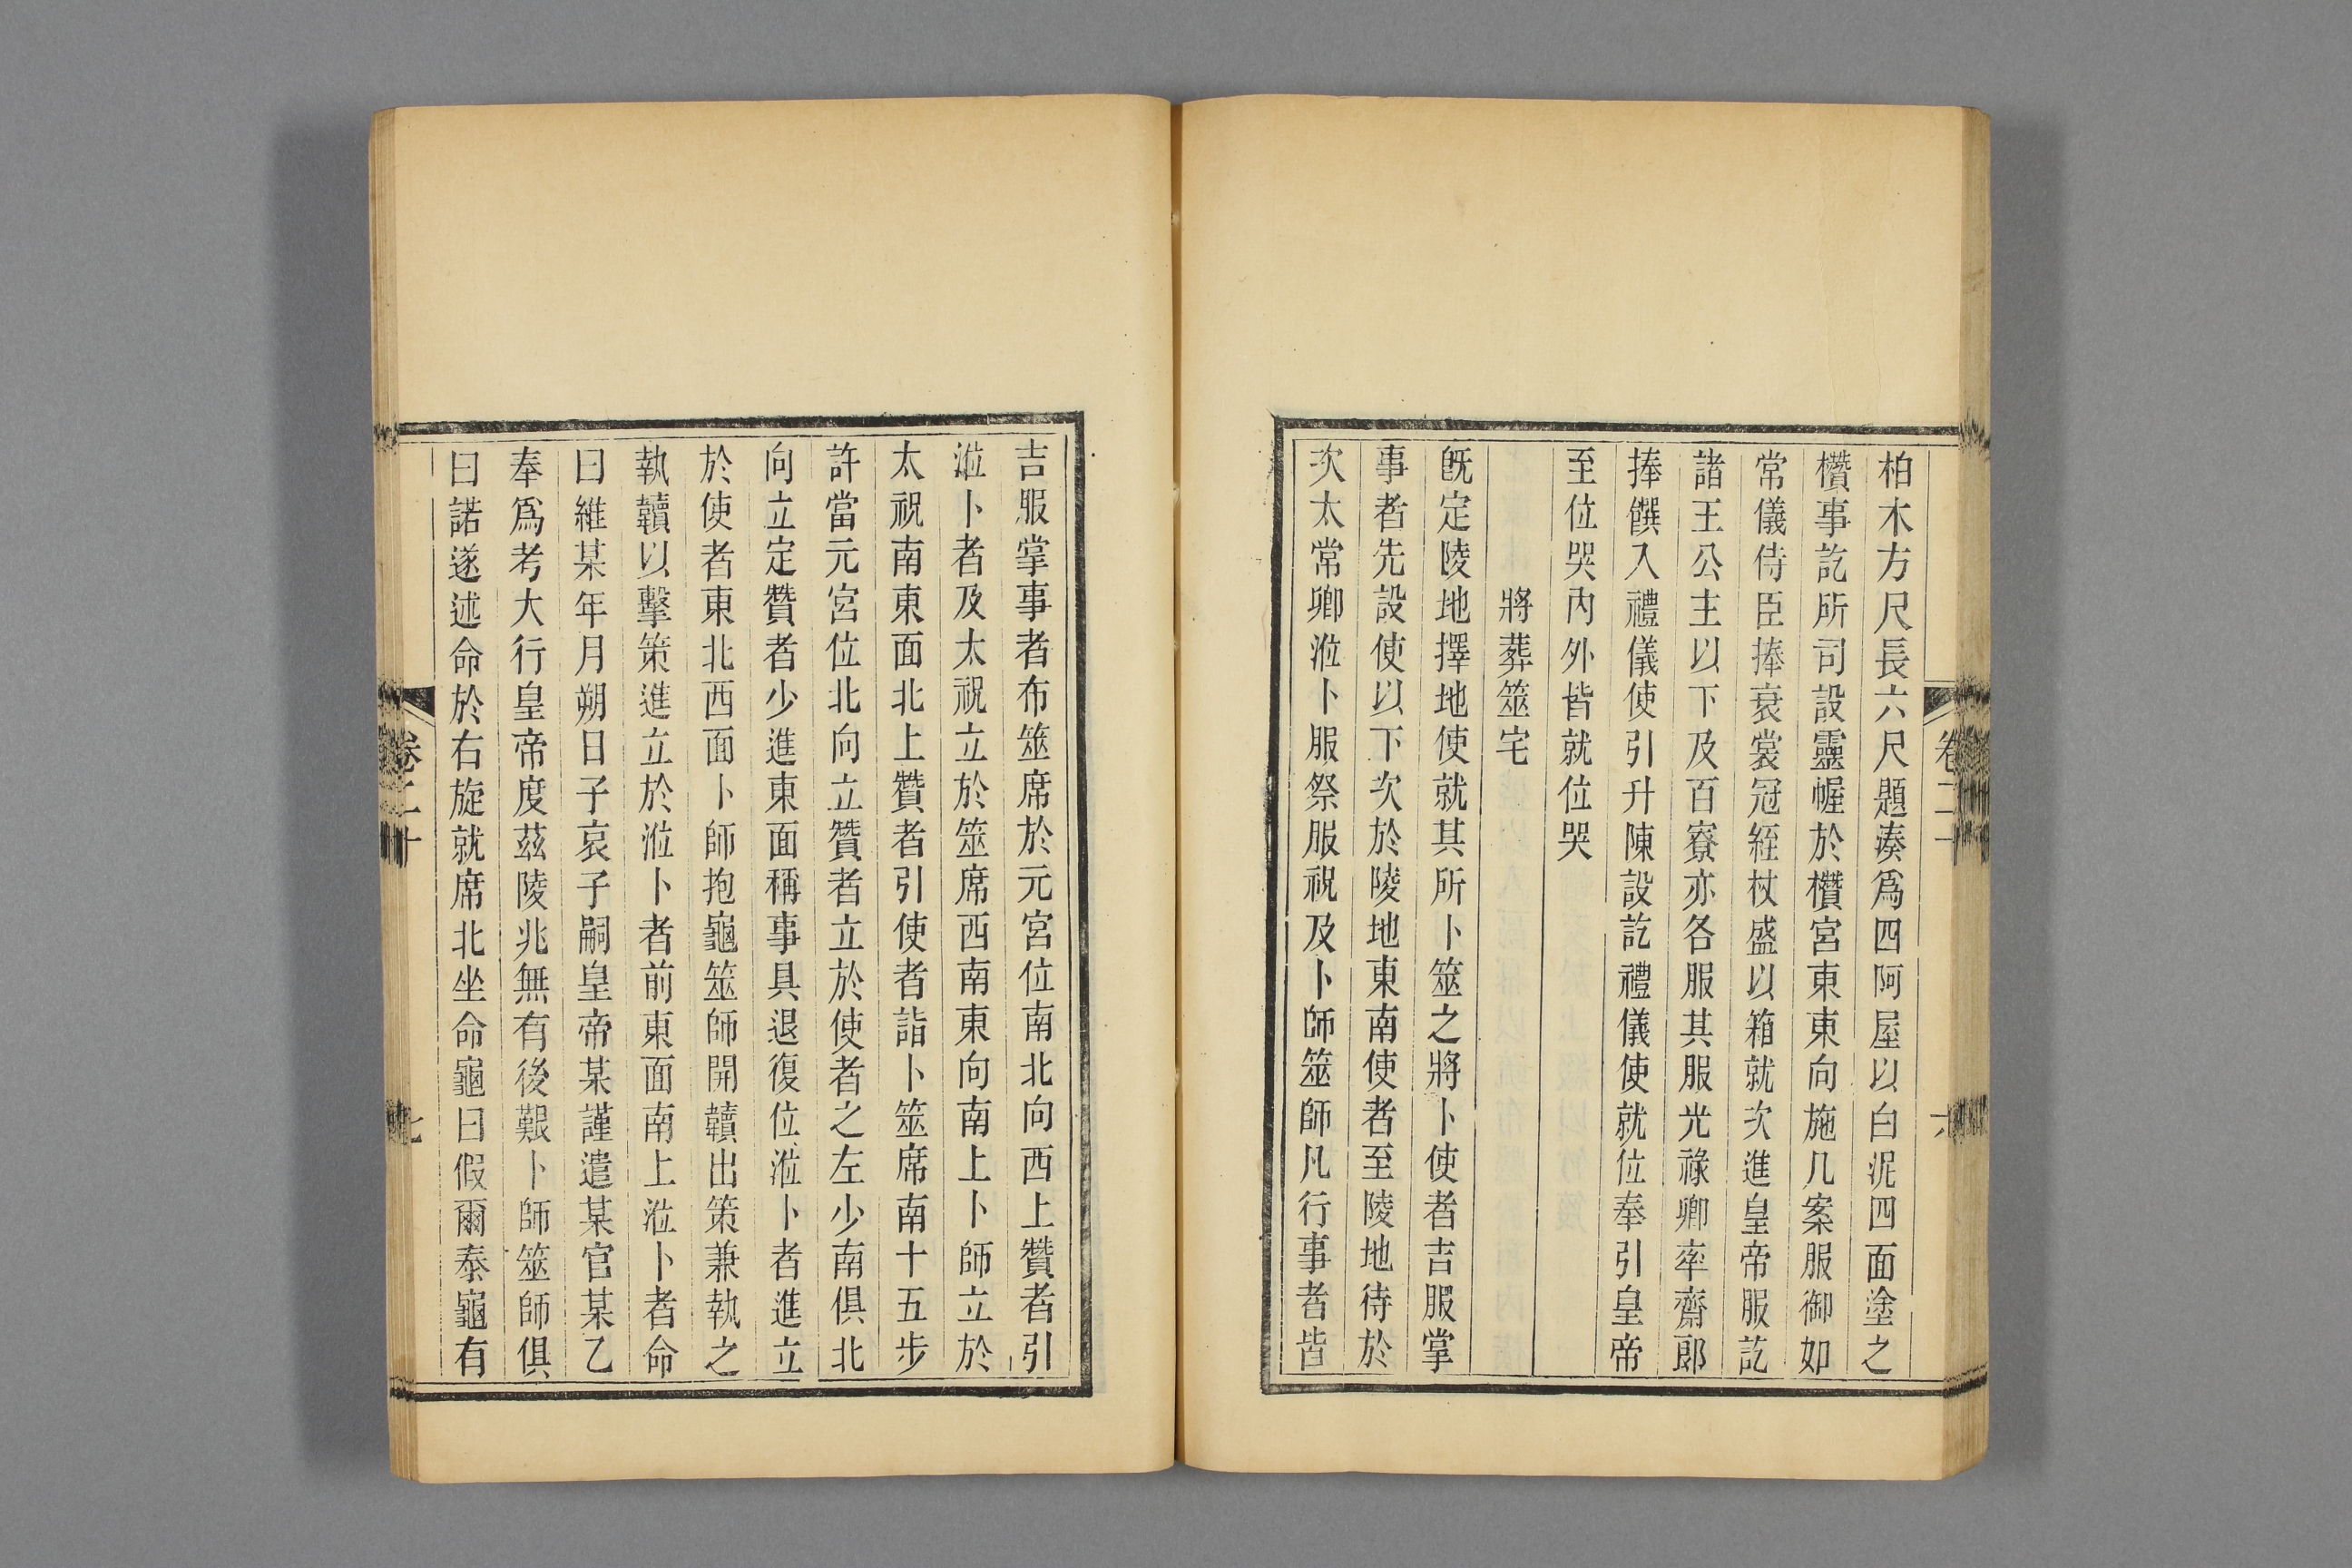 柏木方尺長六尺題湊爲四阿屋以白泥四面塗之
欑事訖所司設靈幄於欑宮東東向施几案服御如
常儀侍臣捧衰裳冠絰杖盛以箱就次進皇帝服訖
諸王公主以下及百寮亦各服其服光祿卿率齋郎
捧饌入禮儀使引升陳設訖禮儀使就位奉引皇帝
至位哭內外皆就位哭
將葬筮宅
旣定陵地擇地使就其所卜筮之將卜使者吉服掌
事者先設使以下次於陵地東南使者至陵地待於
次太常卿涖卜服祭服祝及卜師筮師凡行事者皆
卷二十
六
吉服掌事者布筮席於元宮位南北向西上贊者引
涖卜者及太祝立於筮席西南東向南上卜師立於
太祝南東面北上贊者引使者詣卜筮席南十五步
許當元宮位北向立贊者立於使者之左少南俱北
向立定贊者少進東面稱事具退復位涖卜者進立
於使者東北西面卜師抱龜筮師開韇出策兼執之
執韇以擊策進立於涖卜者前東面南上涖卜者命
曰維某年月朔日子哀子嗣皇帝某謹遣某官某乙
奉爲考大行皇帝度茲陵兆無有後艱卜師筮師俱
曰諾遂述命於右旋就席北坐命龜曰假爾泰龜有
卷二十
七